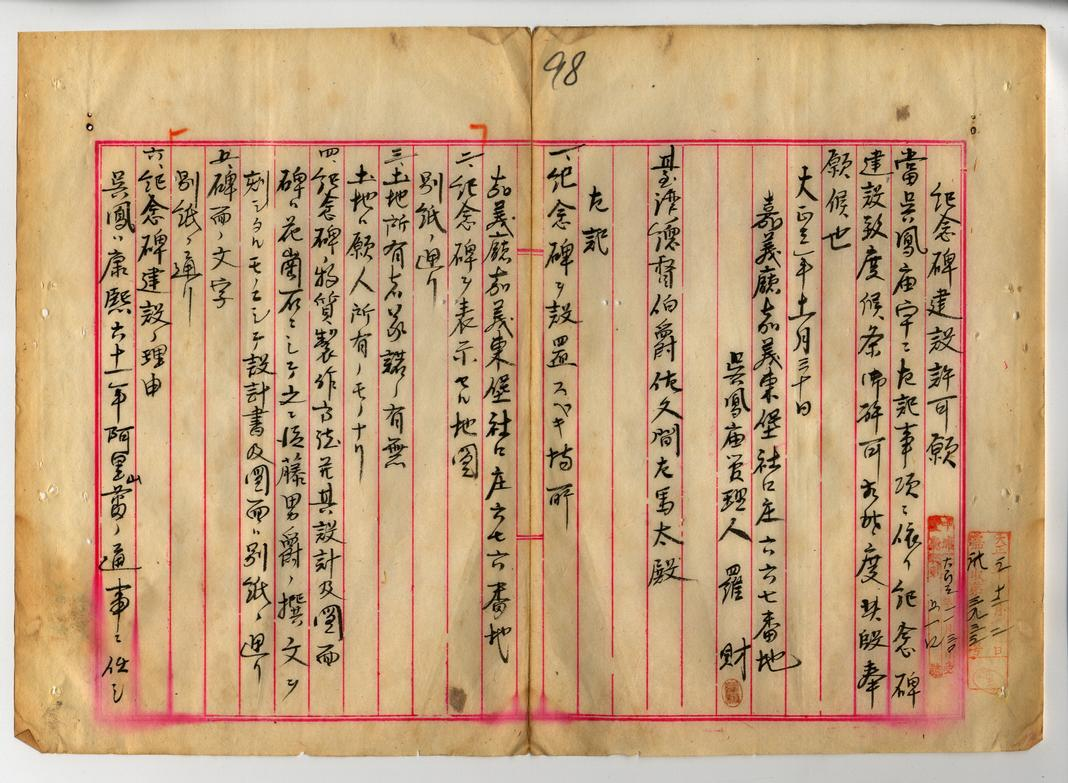 98
紀念碑建設許可願
當呉鳳廟宇ニ左記事項ニ依リ紀念碑
建設致度候条御許可相成度此段奉
願候也
大正三年十一月三十日
嘉義廳嘉義東堡社口庄六六七番地
呉鳳庙管理人 羅 財
臺湾總督伯爵佐久間左馬太殿
左記
一、紀念碑ヲ設置スベキ場所
嘉義廳嘉義東堡社口庄六七六番地
二、紀念碑ヲ表示セル地圖
別紙ノ通リ
三、土地所有者承諾ノ有無
土地ハ願人所有ノモノナリ
四、紀念碑ノ物質製作方法并其設計及圖面
碑ハ花崗石ニシテ之ニ後藤男爵ノ撰文ヲ
刻シタルモノニシテ設計書及圖面ハ別紙ノ通リ
五、碑面ノ文字
別紙ノ通リ
六、紀念碑建設ノ理由
呉鳳ハ康熙六十一年阿里山蕃ノ通事ニ任シ